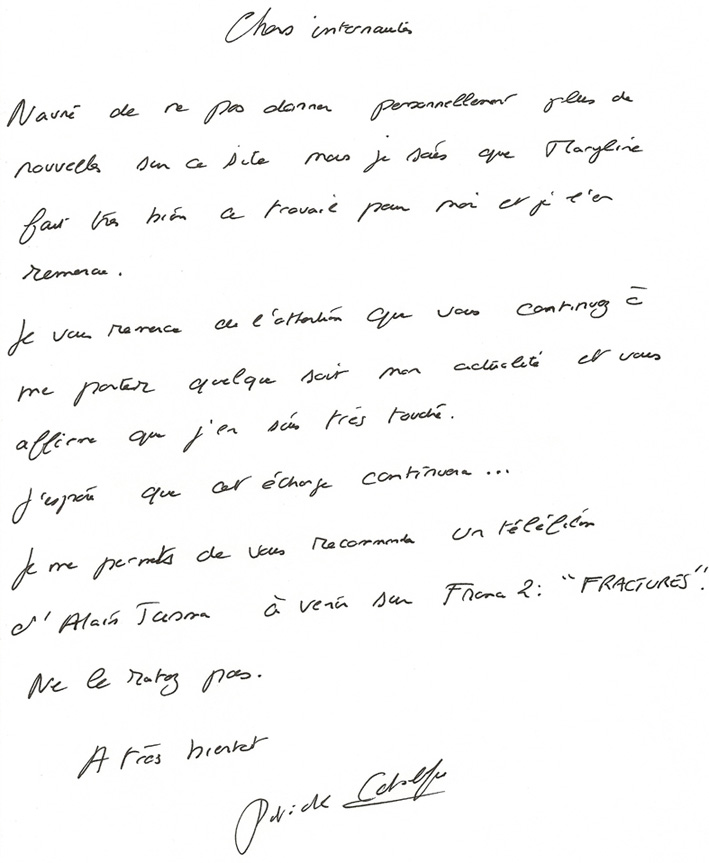 Chers internautes
Navré de ne pas donner personnellement plus de
nouvelles sur ce site mais je sais que Maryline
fait très bien ce travail pour moi et je l'en
remercie.
Je vous remercie de l'attention que vous continuez à
me porter quelque soit mon actualité et vous
affirme que j'en suis très touché.
J'espère que cet échange continuera...
Je me permets de vous recommander un téléfilm
d'Alain Tasma à venir sur France 2: "FRACTURES".
Ne le ratez pas.
A très bientot
Patrick